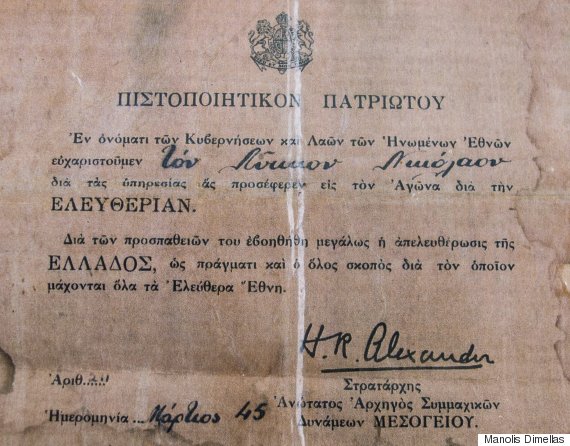 ΠΙΣΤΟΠΟΙΗΤΙΚΟΝ ΠΑΤΡΙΩΤΟΥ
Ἐν ὀνόματι τῶν Κυβερνήσεων καὶ Λαῶν τῶν Ἡνωμένων Ἐθνῶν
εὐχαριστοῦμεν τόν Νικόλαον
διὰ τὰς ὑπηρεσίας ἃς προσέφερεν εἰς τὸν Ἀγῶνα διὰ τὴν
ΕΛΕΥΘΕΡΙΑΝ.
Διὰ τῶν προσπαθειῶν του ἐβοηθήθη μεγάλως ἡ ἀπελευθέρωσις τῆς
ΕΛΛΑΔΟΣ, ὡς πράγματι καὶ ὁ ὅλος σκοπὸς διὰ τὸν ὁποῖον
μάχονται ὅλα τὰ Ἐλεύθερα Ἔθνη.
H.R. Alexander
Στρατάρχης
Ἀνώτατος Ἀρχηγὸς Συμμαχικῶν
Δυνάμεων ΜΕΣΟΓΕΙΟΥ.
Ἀριθ.
Ἡμερομηνία ... Μάρτιος 45
Manolis Dimellas